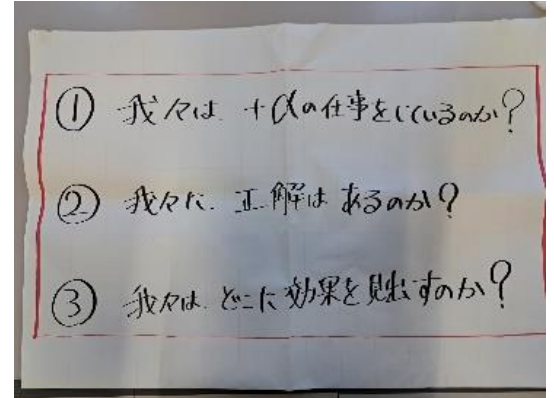 ① 我々は +αの仕事をしているのか?
② 我々に 正解は あるのか?
③ 我々は どこに効果を見出すのか?